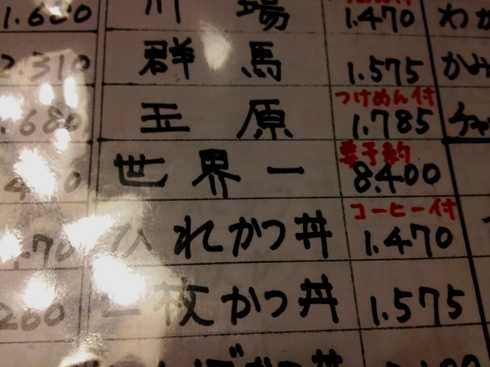 1.680 川場 1.470 わか
2.310 群馬 1.575 かみ
つけめん付
.680 玉原 1.785 チャ
要予約
世界一 8.400
コーヒー付
.70 ひれかつ丼 1.470
260 一枚かつ丼 1.575
かつ丼